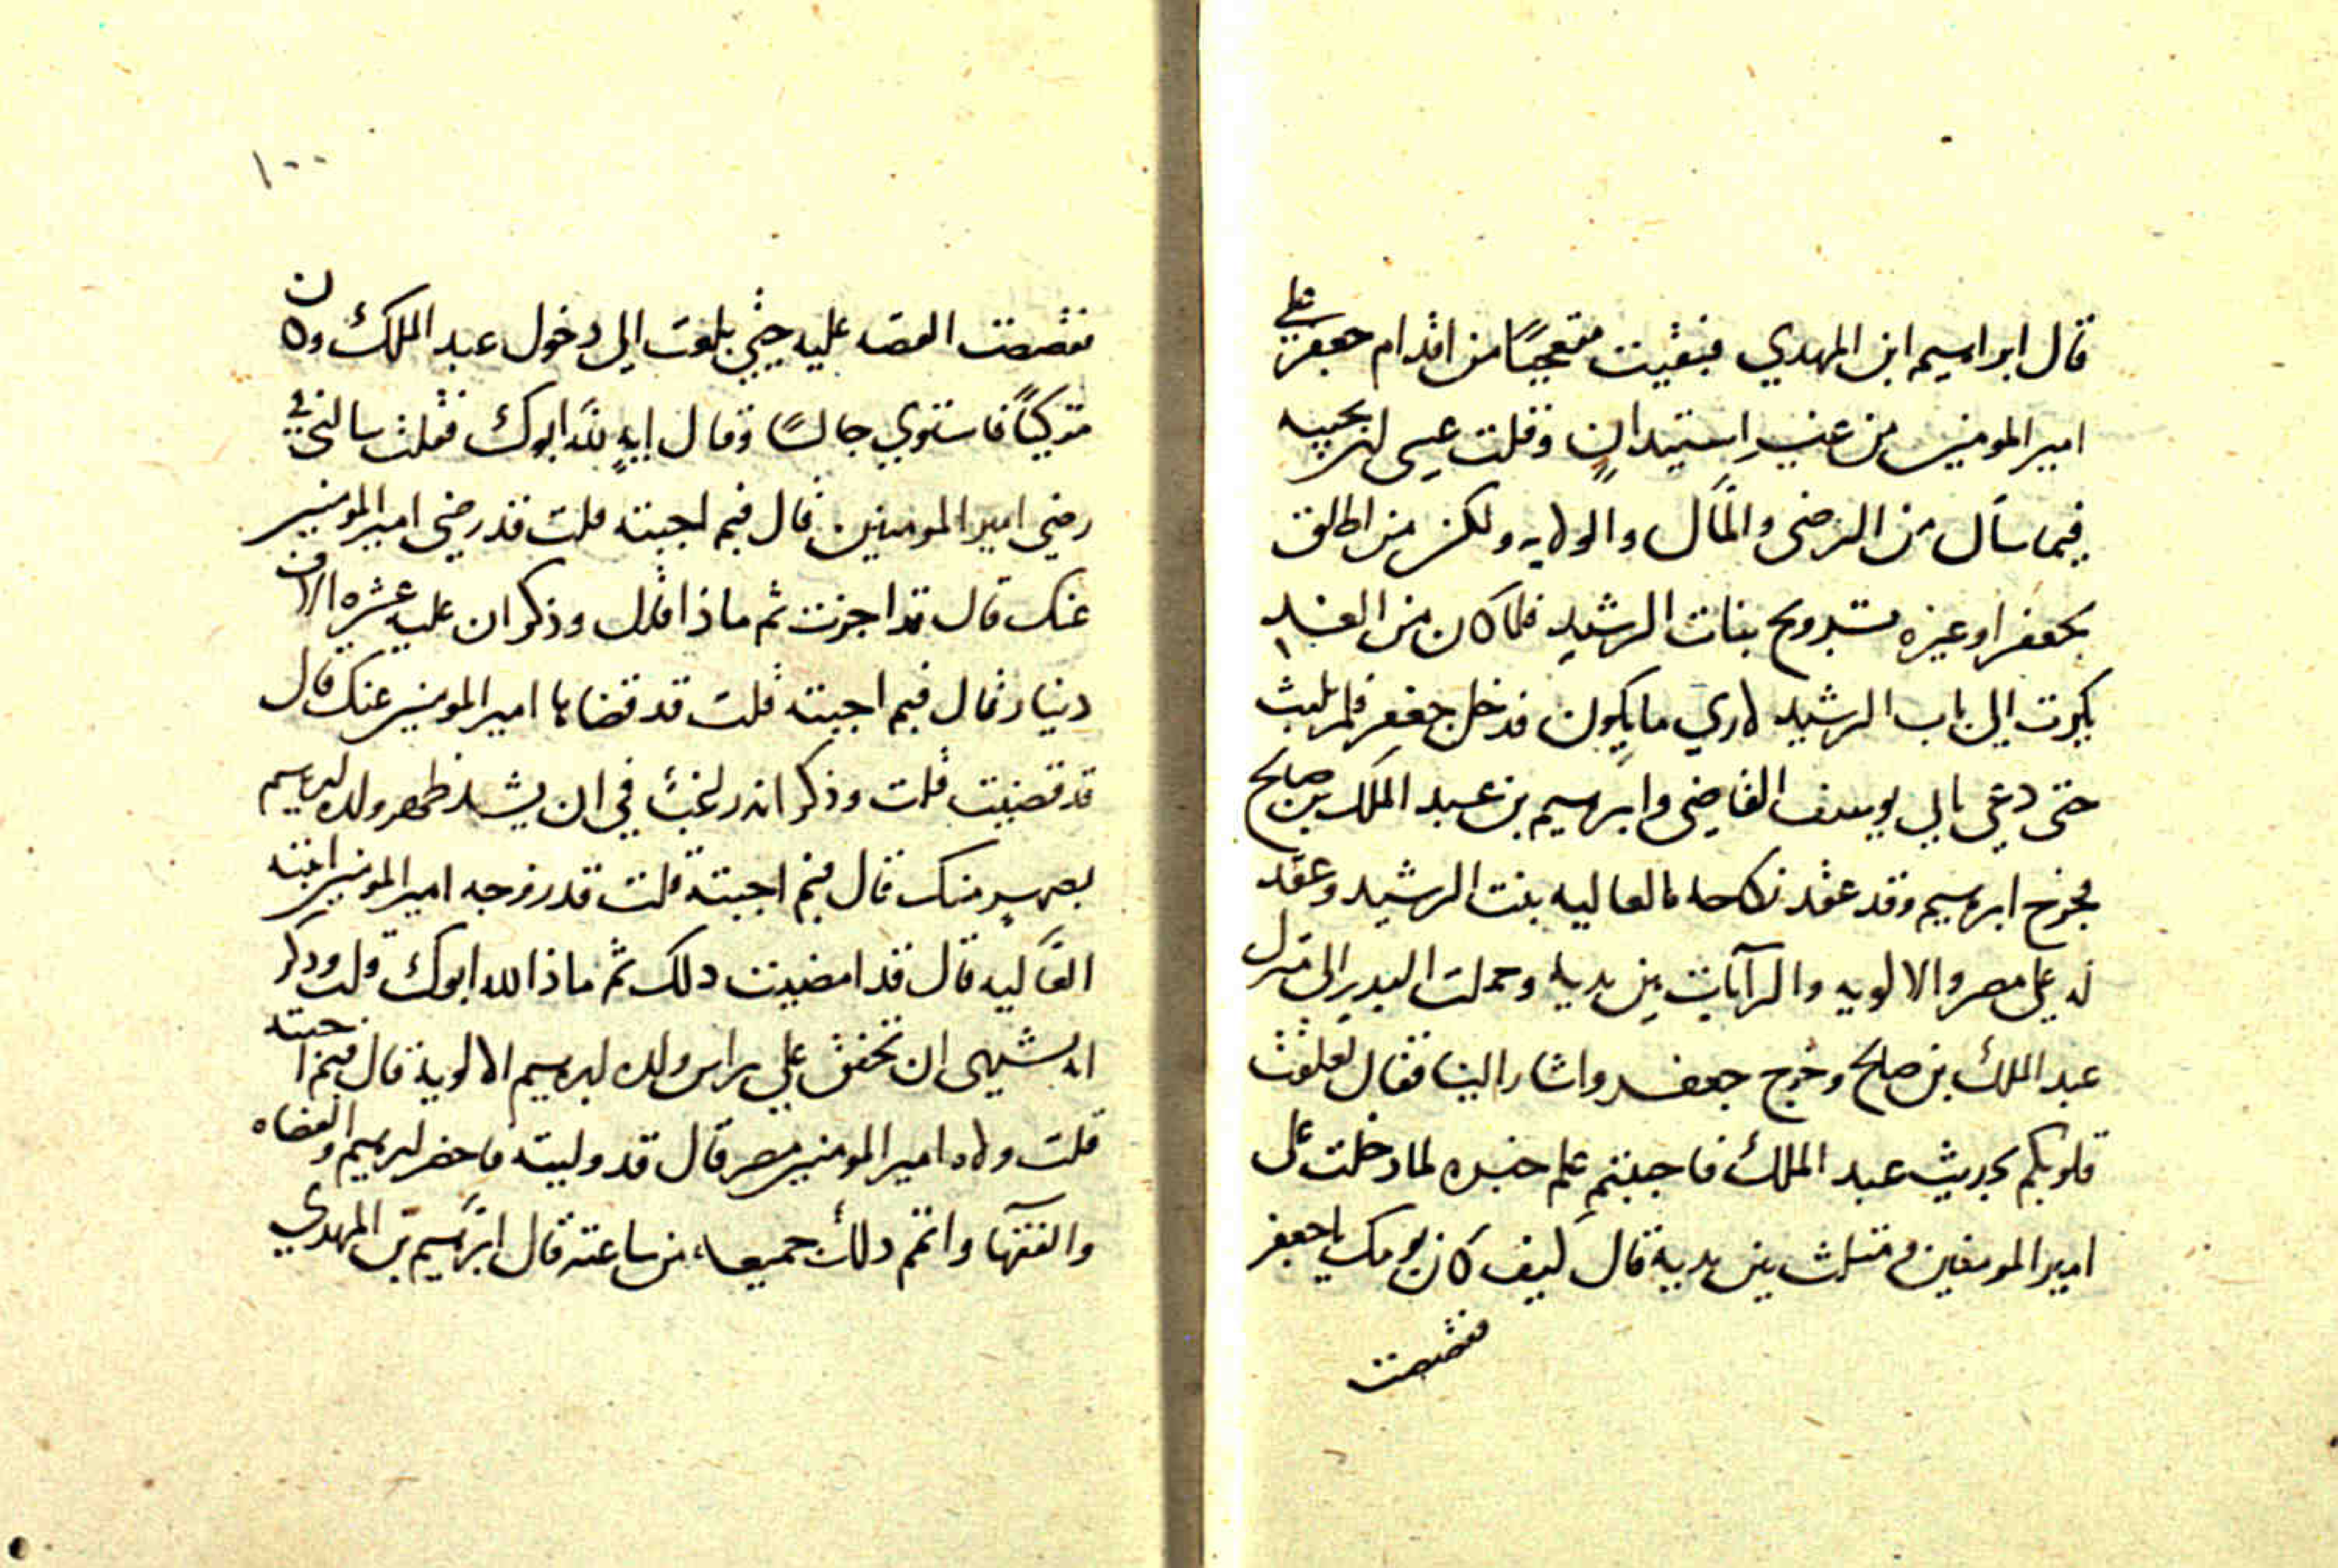 قال ابراهيم ابن المهدي فبقيت متعجبًا من اقدام جعفر علي
امير المومنين من غير استيدان وقلت عسى ان يجيبه
فيما سأل من الرضى والمال والولايه ولكن من اطلق
لجعفر او غيره تبزويج بنات الرشيد فلما كان من الغد
بكرت الى باب الرشيد لاري ما يكون فدخل جعفر فلم يلبث
حتى دعي بابي يوسف القاضي وابرهيم بن عبد الملك بن صالح
فخرج ابرهيم وقد عقد نكاحه بالعاليه بنت الرشيد وعقد
له على مصر والالويه والرآيات بين يديه وحملت البدر الى منزل
عبد الملك بن صالح وخرج جعفر واشار الينا فقال تعلقت
قلوبكم بحديث عبد الملك فاحببتم علم خبره لما دخلت على
امير المومنين ومثلت بين يديه قال كيف كان يومك يا جعفر
فقصصت
١٠٠
فقصصت القصه عليه حتى بلغت الي دخول عبد الملك وكان
متوكيًا فاستوي جالسًا وقال ايهٍ لله ابوك فقلت سالني في
رضي امير المومنين قال فبم اجبته قلت قد رضي امير المومنين
عنك قال قد اجزت ثم ماذا قلت وذكر ان عليه عشره الاف
دينار فقال فبم اجبته قلت قد قضاها امير المومنين عنك قال
قد قضيت قلت وذكر انه راغب في ان يشد ظهر ولده ابرهيم
بصهر منك قال فبم اجبته قلت قد زوجه امير المومنين ابنته
العاليه قال قد امضيت دلك ثم ماذا لله ابوك قلت وذكر
انه يشتهى ان تخفق على راس ولده ابرهيم الالوية قال فبم اجبته
قلت ولاه امير المومنين مصر قال قد وليته فاحضر ابرهيم والقضاه
والفقهآ واتم دلك جميعه من ساعته قال ابرهيم بن المهدي